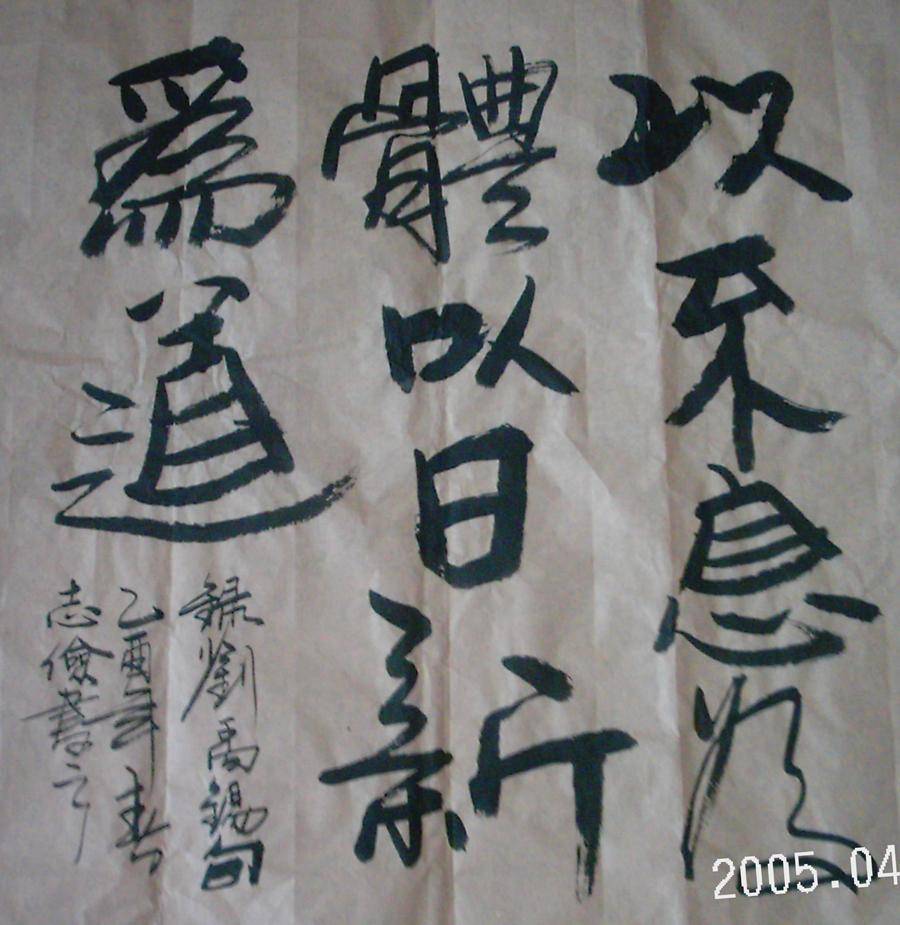 以不息為
體以日新
為道
錄劉禹錫句
乙酉年春
志儉書之
2005.04